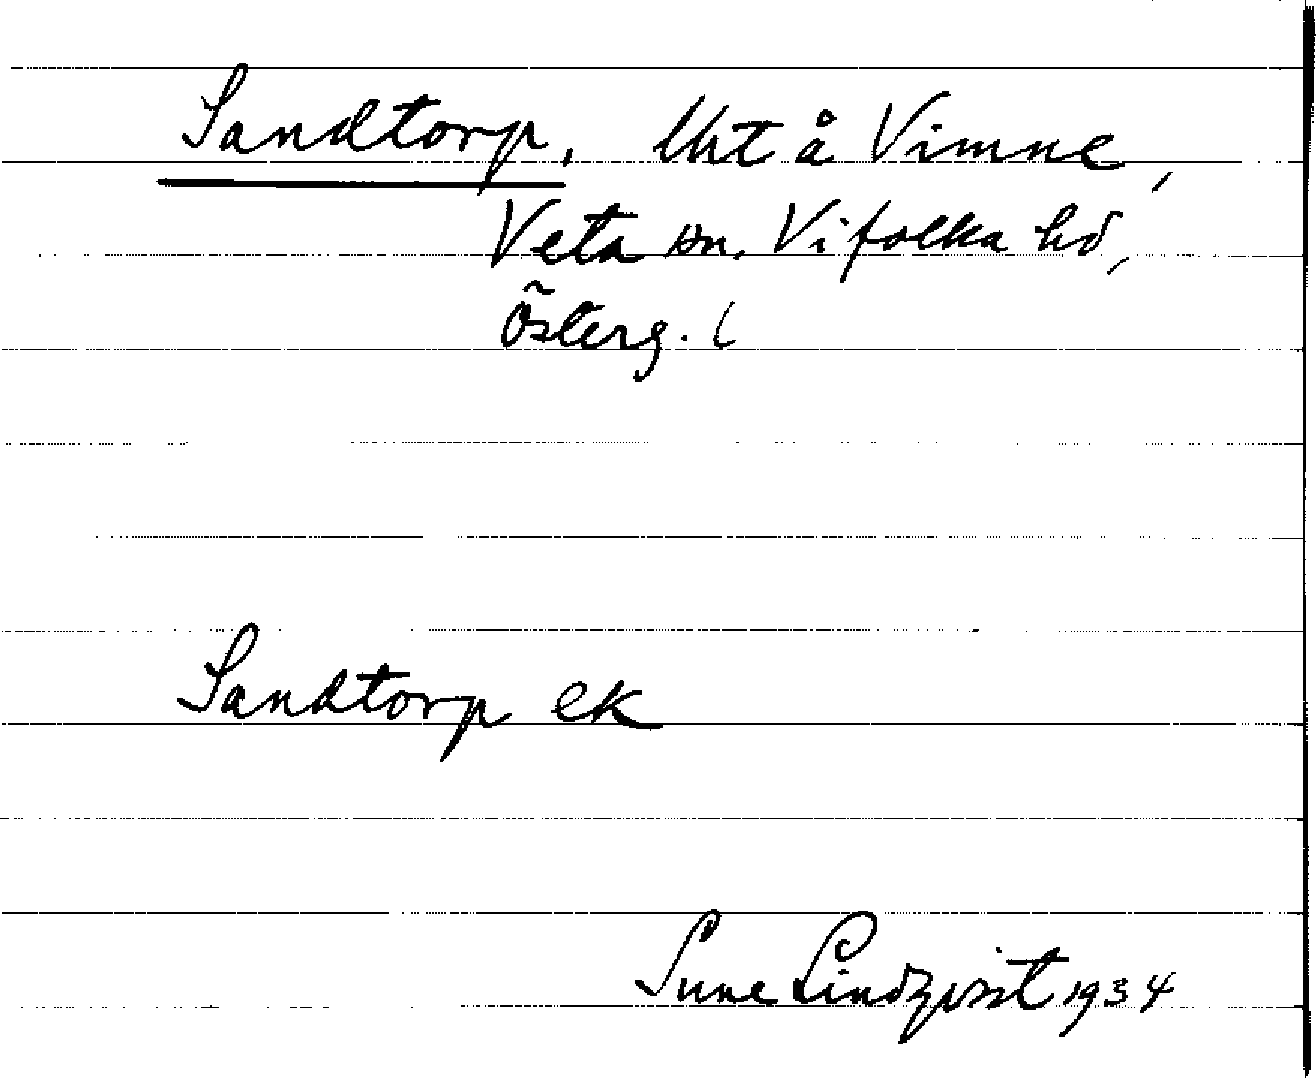 Sandtorp, lht å Vimne,
Veta sn. Vifolka hd,
Österg. l
Sandtorp ek
Sune Lindqvist 1934